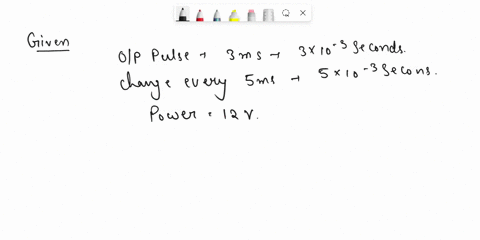 Given
O/P Pulse → 3ms → 3×10⁻³ Seconds.
change every 5ms → 5×10⁻³ Secons.
Power = 12 V.